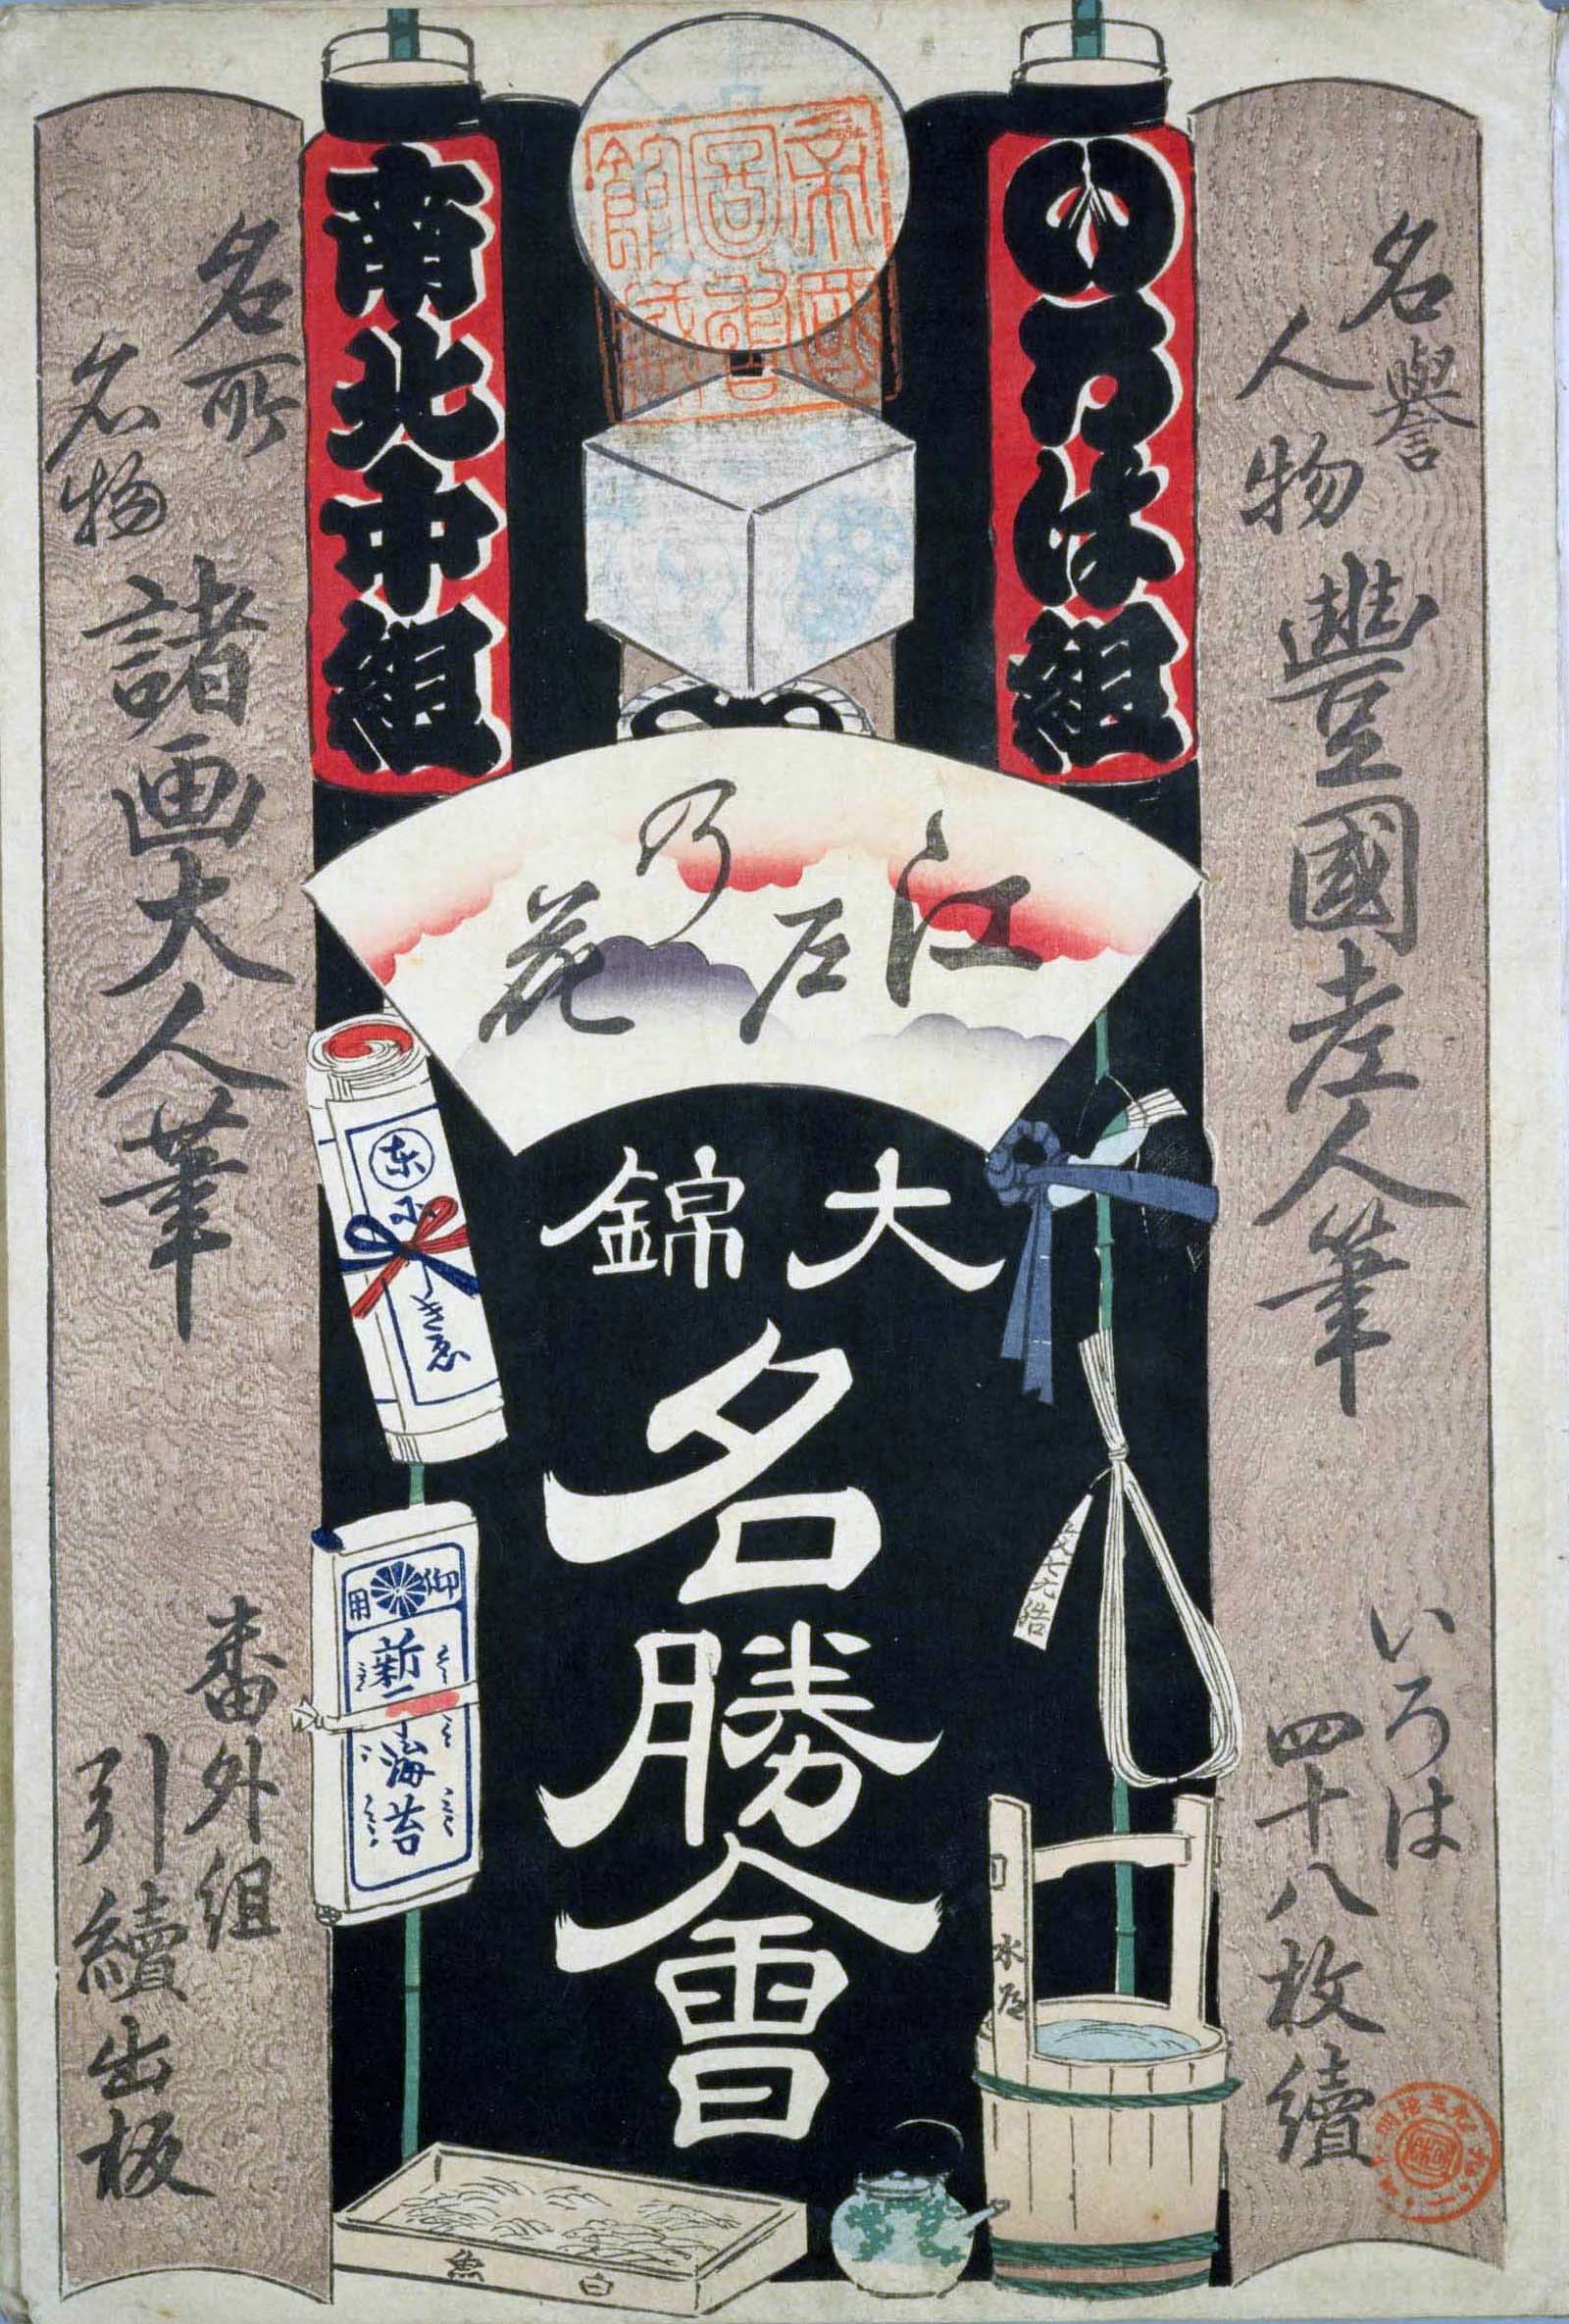 名譽
人物
豊國老人筆
いろは
四十八枚續
いろは組
江戸
乃花
大錦
名勝會
南北中組
名所
名物
諸画大人筆
番外組
引續出板
御用
新
海苔
水
白魚
帝國
圖書
館藏